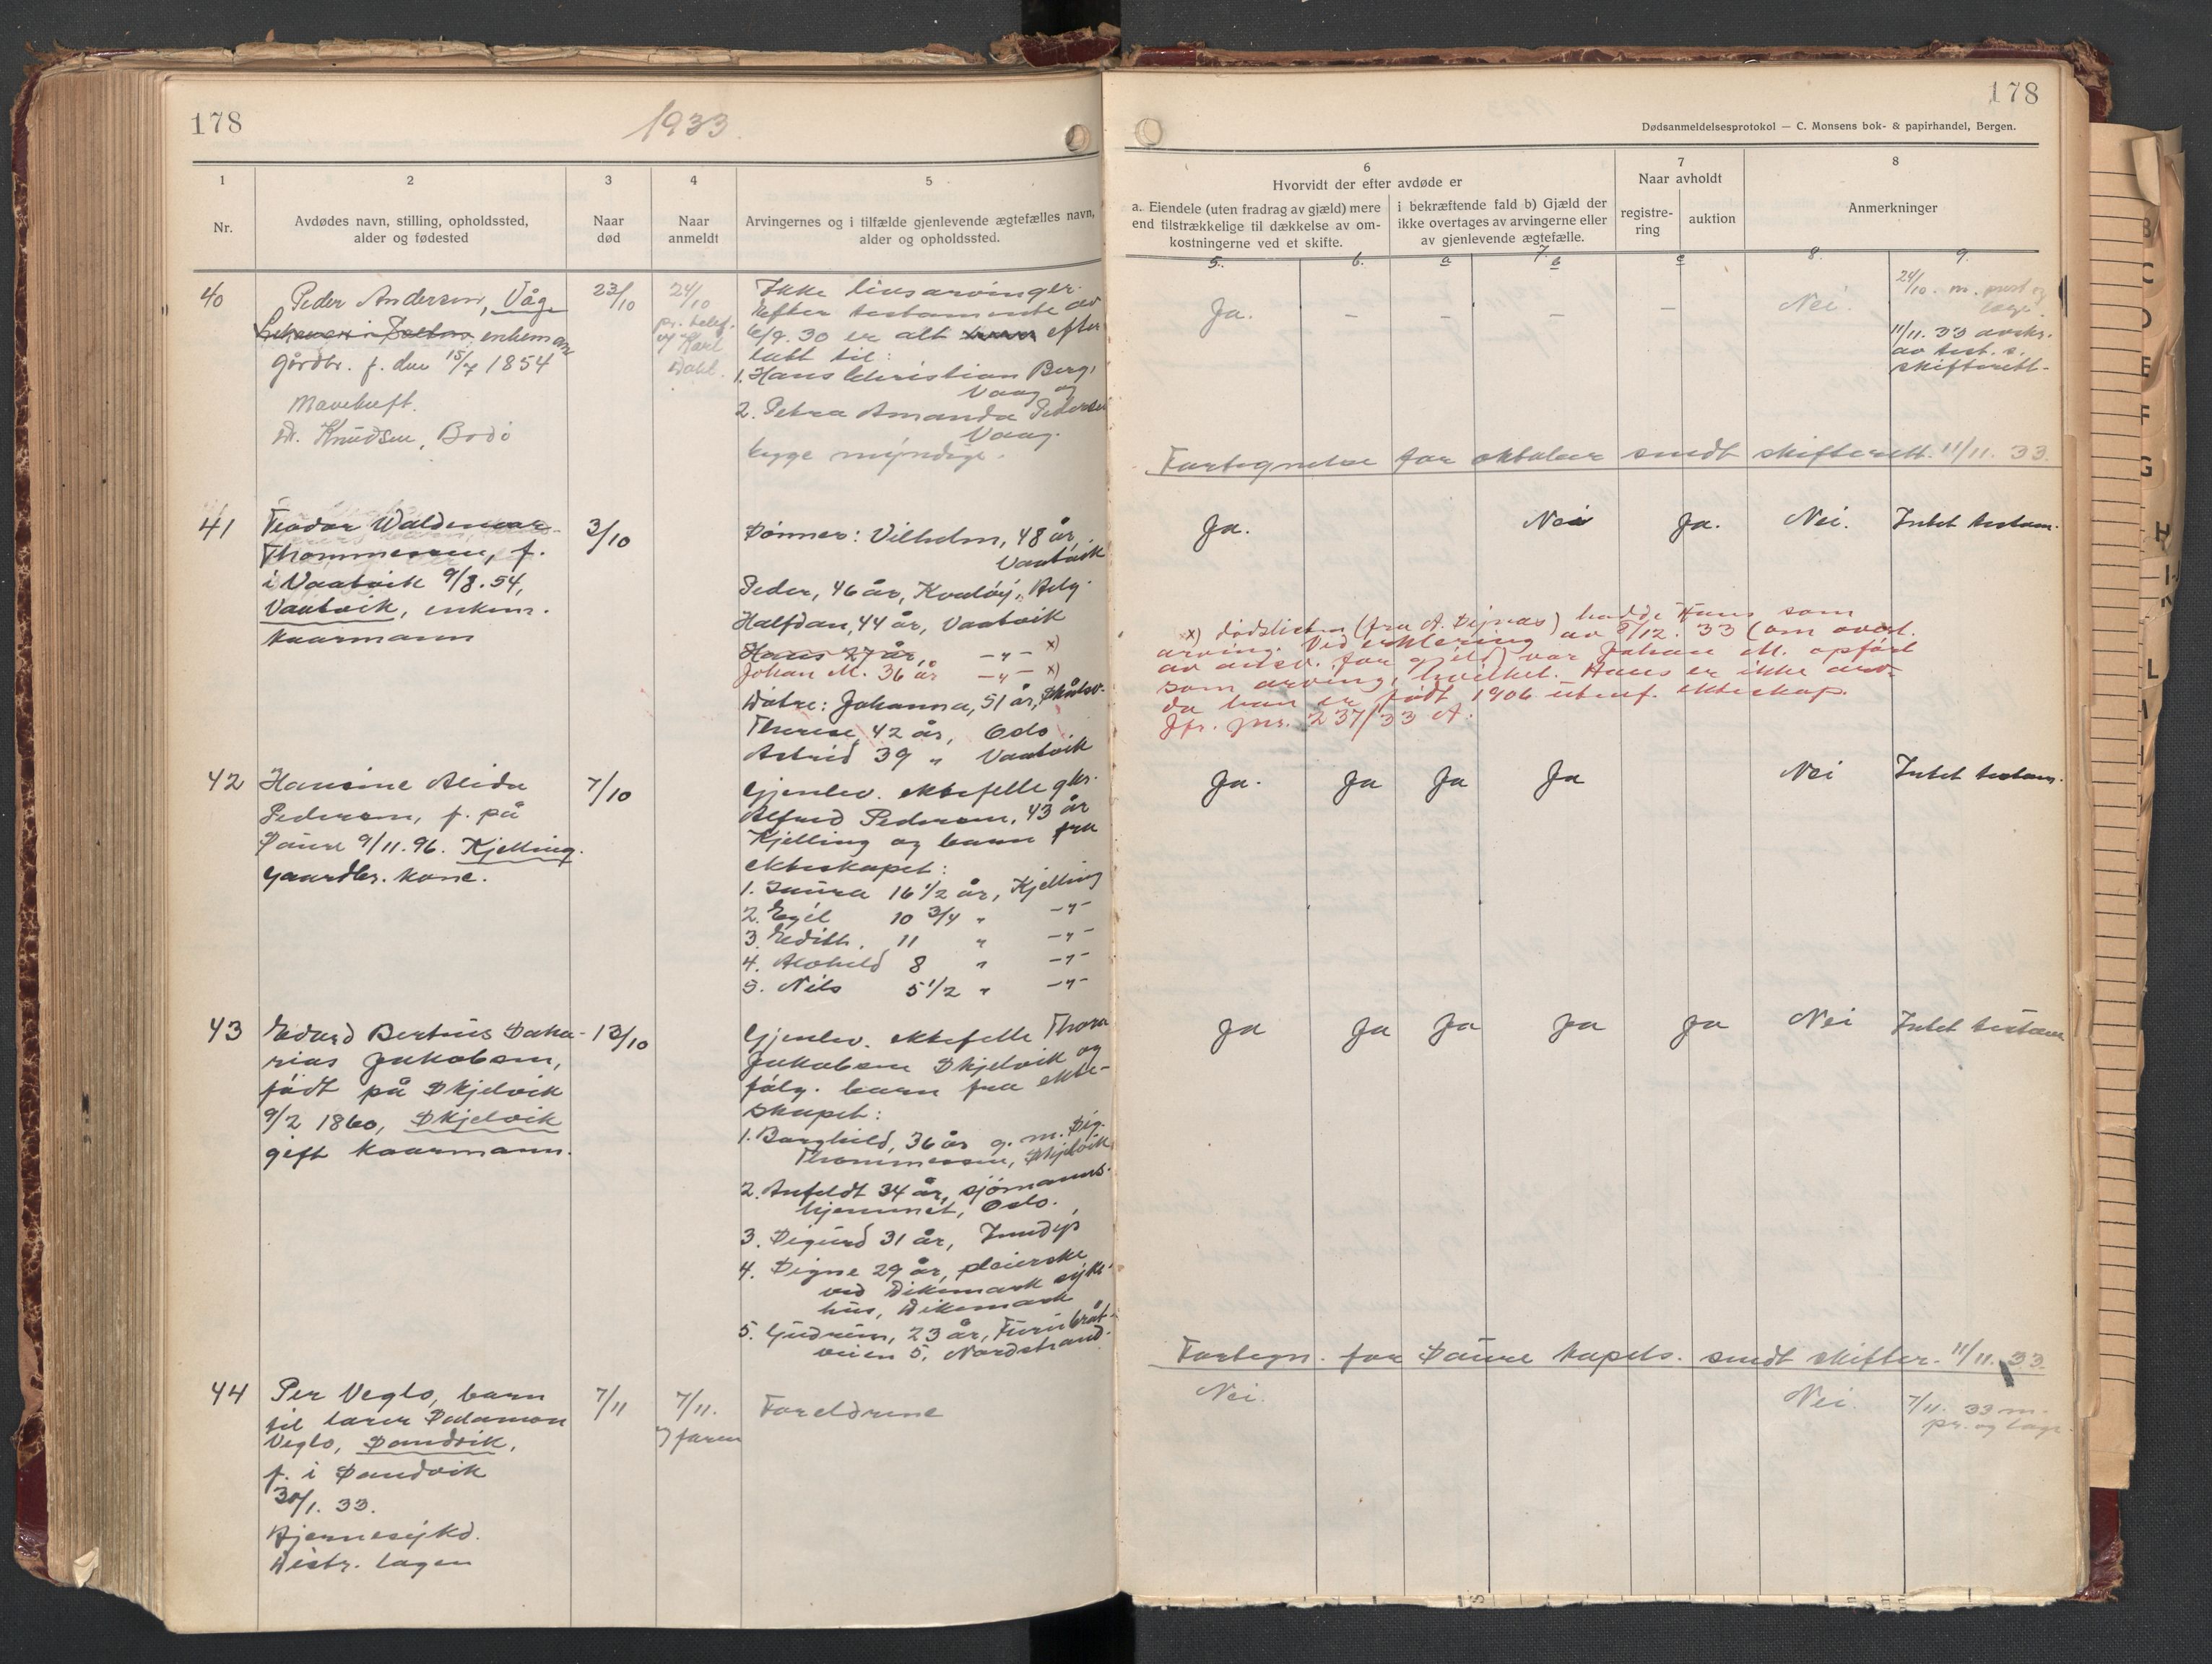 178
1933.
178
Dødsanmeldelsesprotokol — C. Monsens bok- & papirhandel, Bergen.
1
Nr.
2
Avdødes navn, stilling, opholdssted,
alder og fødested
3
Naar
død
4
Naar
anmeldt
5
Arvingernes og i tilfælde gjenlevende ægtefælles navn,
alder og opholdssted.
6
Hvorvidt der efter avdøde er
a. Eiendele (uten fradrag av gjæld) mere
end tilstrækkelige til dækkelse av om-
kostningerne ved et skifte.
i bekræftende fald b) Gjæld der
ikke overtages av arvingerne eller
av gjenlevende ægtefælle.
7
Naar avholdt
registre-
ring
auktion
8
Anmerkninger
5. 6. a 7. b c 8. 9.
40
Peder Andersen, Våg
enkemann
gårdbr. f. den 15/7 1854
Mavekreft.
dr. Knudsen, Bodø
23/10
24/10
pr. telef.
v/ Karl
Dahl.
Ikke livsarvinger.
Efter testamente av
6/9. 30 er alt efter
latt til:
1. Hans Christian Berg,
Vaag og
2. Petra Amanda Pedersen
Vaag.
begge myndige.
Ja. — — — — Nei.
24/10. m. prest og
lege.
11/11. 33 avskr.
av test. s.
skifterett.
Fortegnelse for oktober sendt skifterett. 11/11. 33.
41
Teodor Waldemar
Thommessen, f.
i Vaatvik 9/8. 54,
Vaatvik, enkem.
kaarmann
3/10
Sønner: Vilhelm, 48 år,
Vaatvik
Peder, 46 år, Kvaløy, Helg.
Halfdan, 44 år, Vaatvik
Hans 27 år, —„— x)
Johan M. 36 år —„— x)
Døtre: Johanna, 51 år, Skålsv.
Therese 42 år, Oslo
Astrid 39 „ Vaatvik
Ja. Nei Ja. Nei. Intet testam.
x) dødslisten (fra A. Dijnæs) hadde Hans som
arving. Ved erklæring av 8/12. 33 (om overt.
av ansv. for gjeld) var Johan M. opført
som arving, hvilket. Hans er ikke arv.
da han er født 1906 utenf. ekteskap.
Jfr. jnr. 237/33 A.
42
Hansine Alida
Pedersen, f. på
Saure 9/11. 96. Kjelling.
gaardbr. kone.
7/10
Gjenlev. ektefelle gbr.
Alfred Pedersen, 43 år
Kjelling og barn fra
ekteskapet:
1. Laura 16 1/2 år, Kjelling
2. Egil 10 3/4 „ —„—
3. Edith. 11 „ —„—
4. Alvhild 8 „ —„—
5. Nils 5 1/2 „ —„—
Ja. Ja Ja Ja Nei Intet testam.
43
Edvard Bertius Saka-
rias Jakobsen,
født på Skjelvik
9/2 1860, Skjelvik
gift kaarmann.
13/10
Gjenlev. ektefelle Thora
Jakobsen Skjelvik og
følg. barn fra ekte-
skapet:
1. Borghild, 36 år g. m. Sig.
Thommessen, Skjelvik
2. Anfeldt 34 år, sjømanns-
hjemmet, Oslo.
3. Sigurd 31 år, Inndyr
4. Signe 29 år, pleierske
ved Dikemark syke-
hus, Dikemark
5. Gudrun, 23 år, Furubråt-
veien 5, Nordstrand.
Ja Ja Ja Ja Ja Nei Intet testam
Fortegn. for Saura kapels. sendt skifter. 11/11. 33.
44
Per Veglo, barn
til lærer Salamon
Veglo, Sandvik,
f. i Sandvik
30/1. 33.
Hjernesykd.
Distr. legen
7/11
7/11.
v/ faren
Foreldrene
Nei. Nei.
7/11. 33 m.
pr. og lege